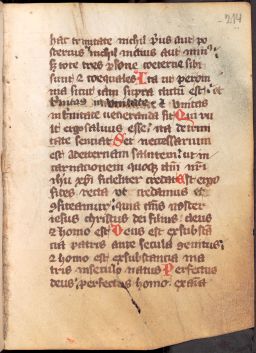 214
hac trinitate nichil prius aut po
sterius nichil maius aut minus
sed tote tres persone coeterne sibi
sunt et coequales Ita ut per om
nia sicut iam supra dictum est et
trinitas in unitate et unitas
in trinitate veneranda sit Qui vu
lt ergo salvus esse ita de trini
tate sentiat Set necessarium
est ad eternam salutem ut in
carnationem quoque domini nostri
ihu xpi fideliter credat Est ergo
fides recta ut credamus et
confiteamur quia dominus noster
iesus christus dei filius deus
et homo est Deus est ex substan
cia patris ante secula genitus
et homo est ex substancia ma
tris in seculo natus Perfectus
deus perfectus homo ex